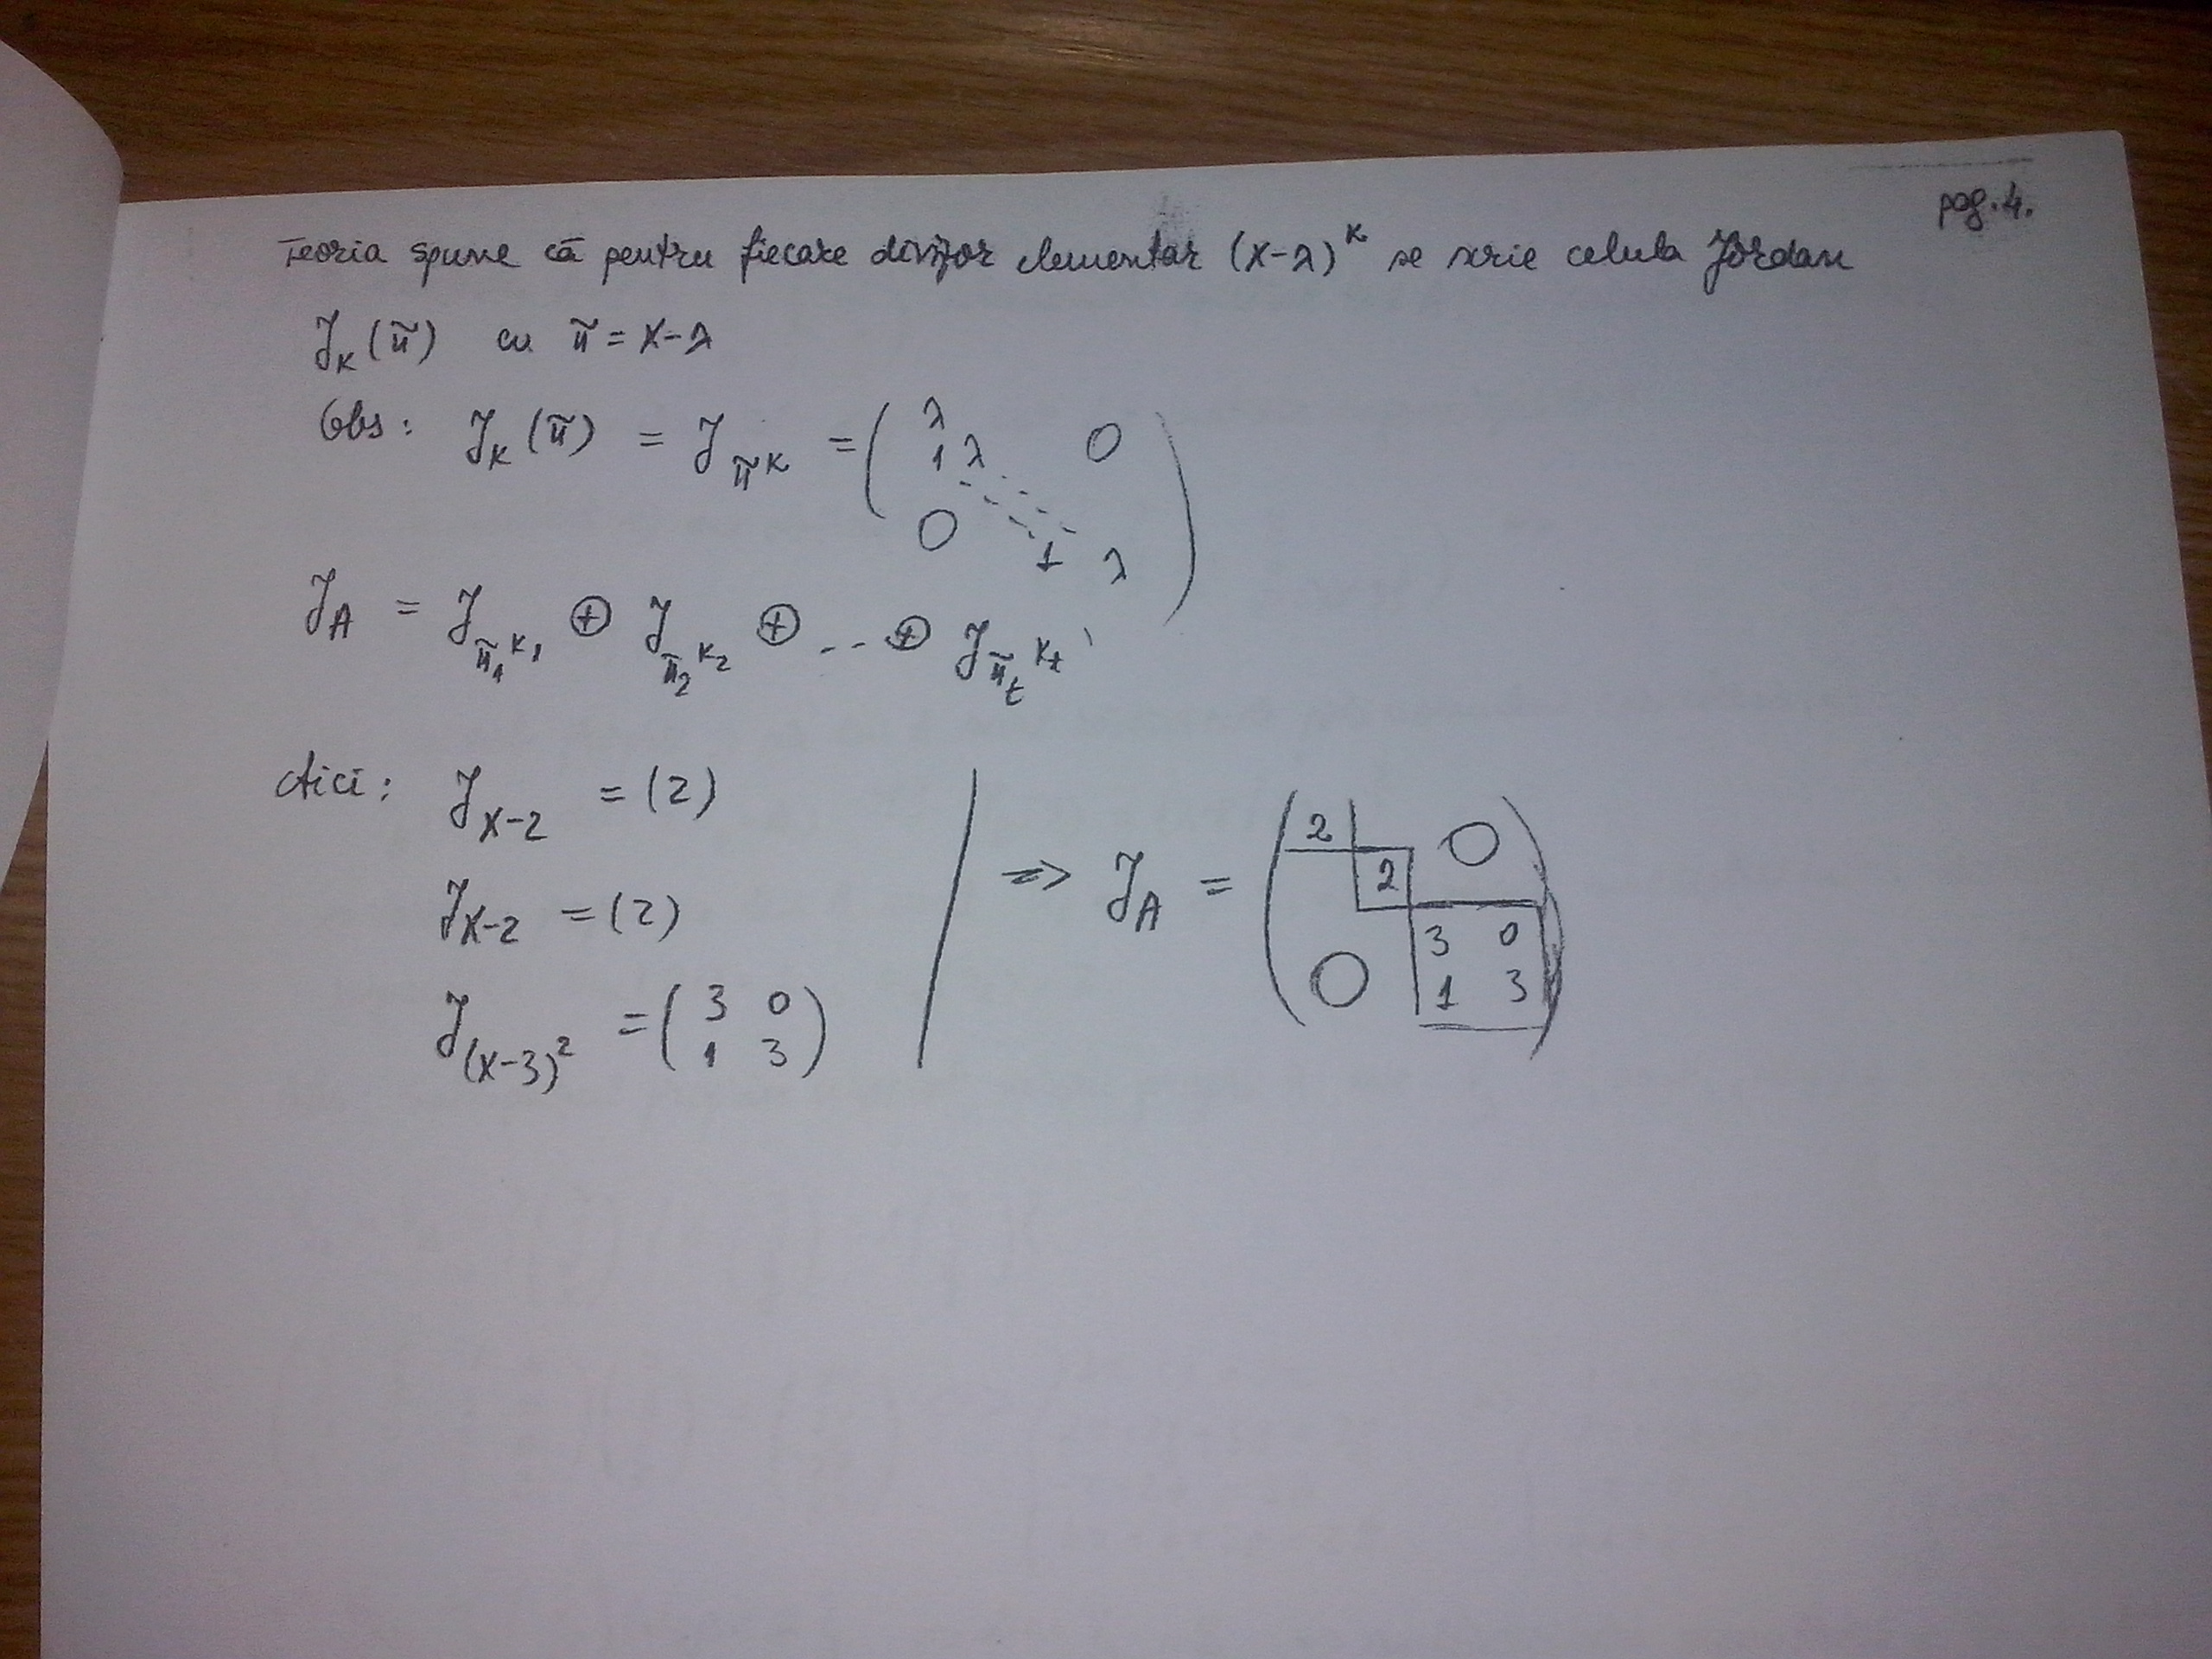 pag. 4.
Teoria spune că pentru fiecare divizor elementar (X-λ)^k se scrie celula Jordan
J_k(π) cu π = X-λ
Obs: J_k(π) = J_π^k = ( λ
1 λ 0
0 1 λ )
J_A = J_π₁^k₁ ⊕ J_π₂^k₂ ⊕ ... ⊕ J_π_t^k_t
Aici: J_X-2 = (2)
J_X-2 = (2)
J_(X-3)² = ( 3 0
1 3 )
=> J_A = ( 2 0
2
3 0
0 1 3 )